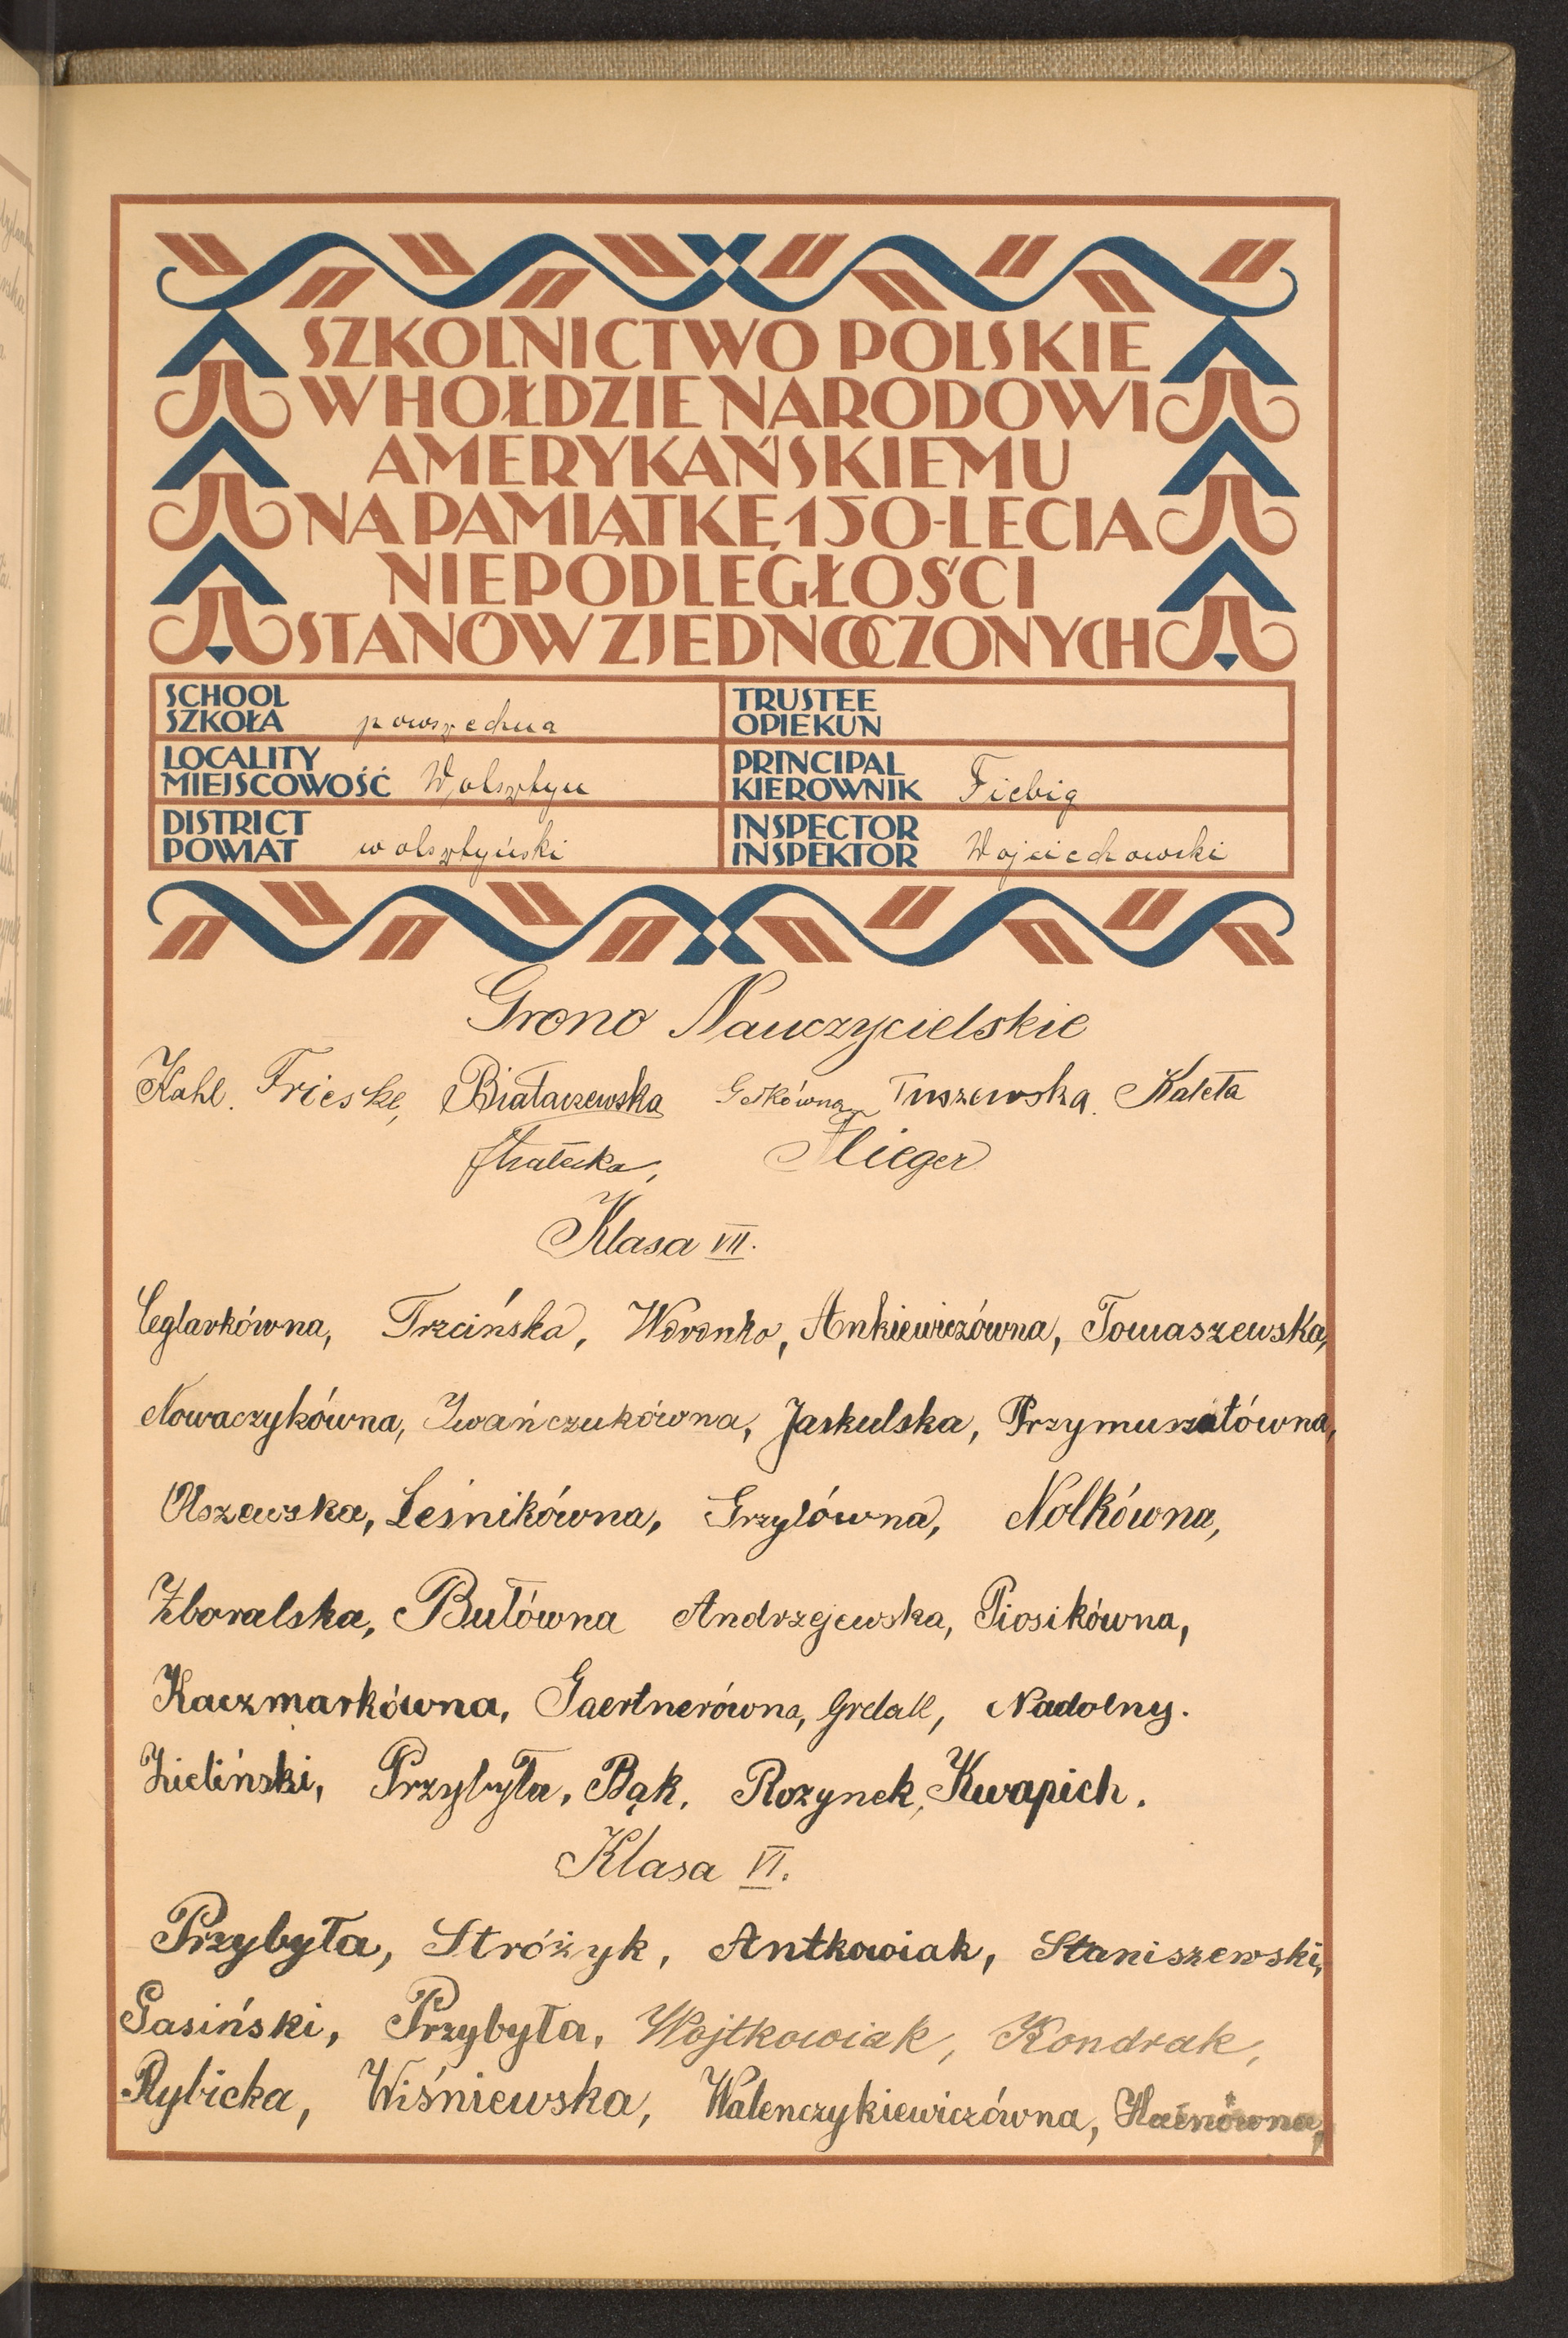 SZKOLNICTWO POLSKIE
W HOŁDZIE NARODOWI
AMERYKAŃSKIEMU
NA PAMIĄTKĘ 150-LECIA
NIEPODLEGŁOŚCI
STANÓW ZJEDNOCZONYCH
SCHOOL
SZKOŁA powszechna
TRUSTEE
OPIEKUN
LOCALITY
MIEJSCOWOŚĆ Wolsztyn
PRINCIPAL
KIEROWNIK Fiebig
DISTRICT
POWIAT wolsztyński
INSPECTOR
INSPEKTOR Wojciechowski
Grono Nauczycielskie
Kahl. Frieske, Białaczewska Tuszewska. Kaleta
Flieger
Klasa VII.
Ceglarkówna, Trzcińska, Woronko, Ankiewiczówna, Tomaszewska,
Nowaczykówna, Iwańczukówna, Jaskulska, Przymuszałówna,
Olszewska, Leśnikówna, Grzylówna, Nolkówna,
Zboralska, Butówna Andrzejewska, Piosikówna,
Kaczmarkówna, Gaertnerówna, Grelak, Nadolny.
Zieliński, Przybyła, Bąk, Rozynek, Kwapich.
Klasa VI.
Przybyła, Stróżyk, Antkowiak, Staniszewski,
Gasiński, Przybyła, Wojtkowiak, Kondrak,
Rybicka, Wiśniewska, Walenczykiewiczówna,